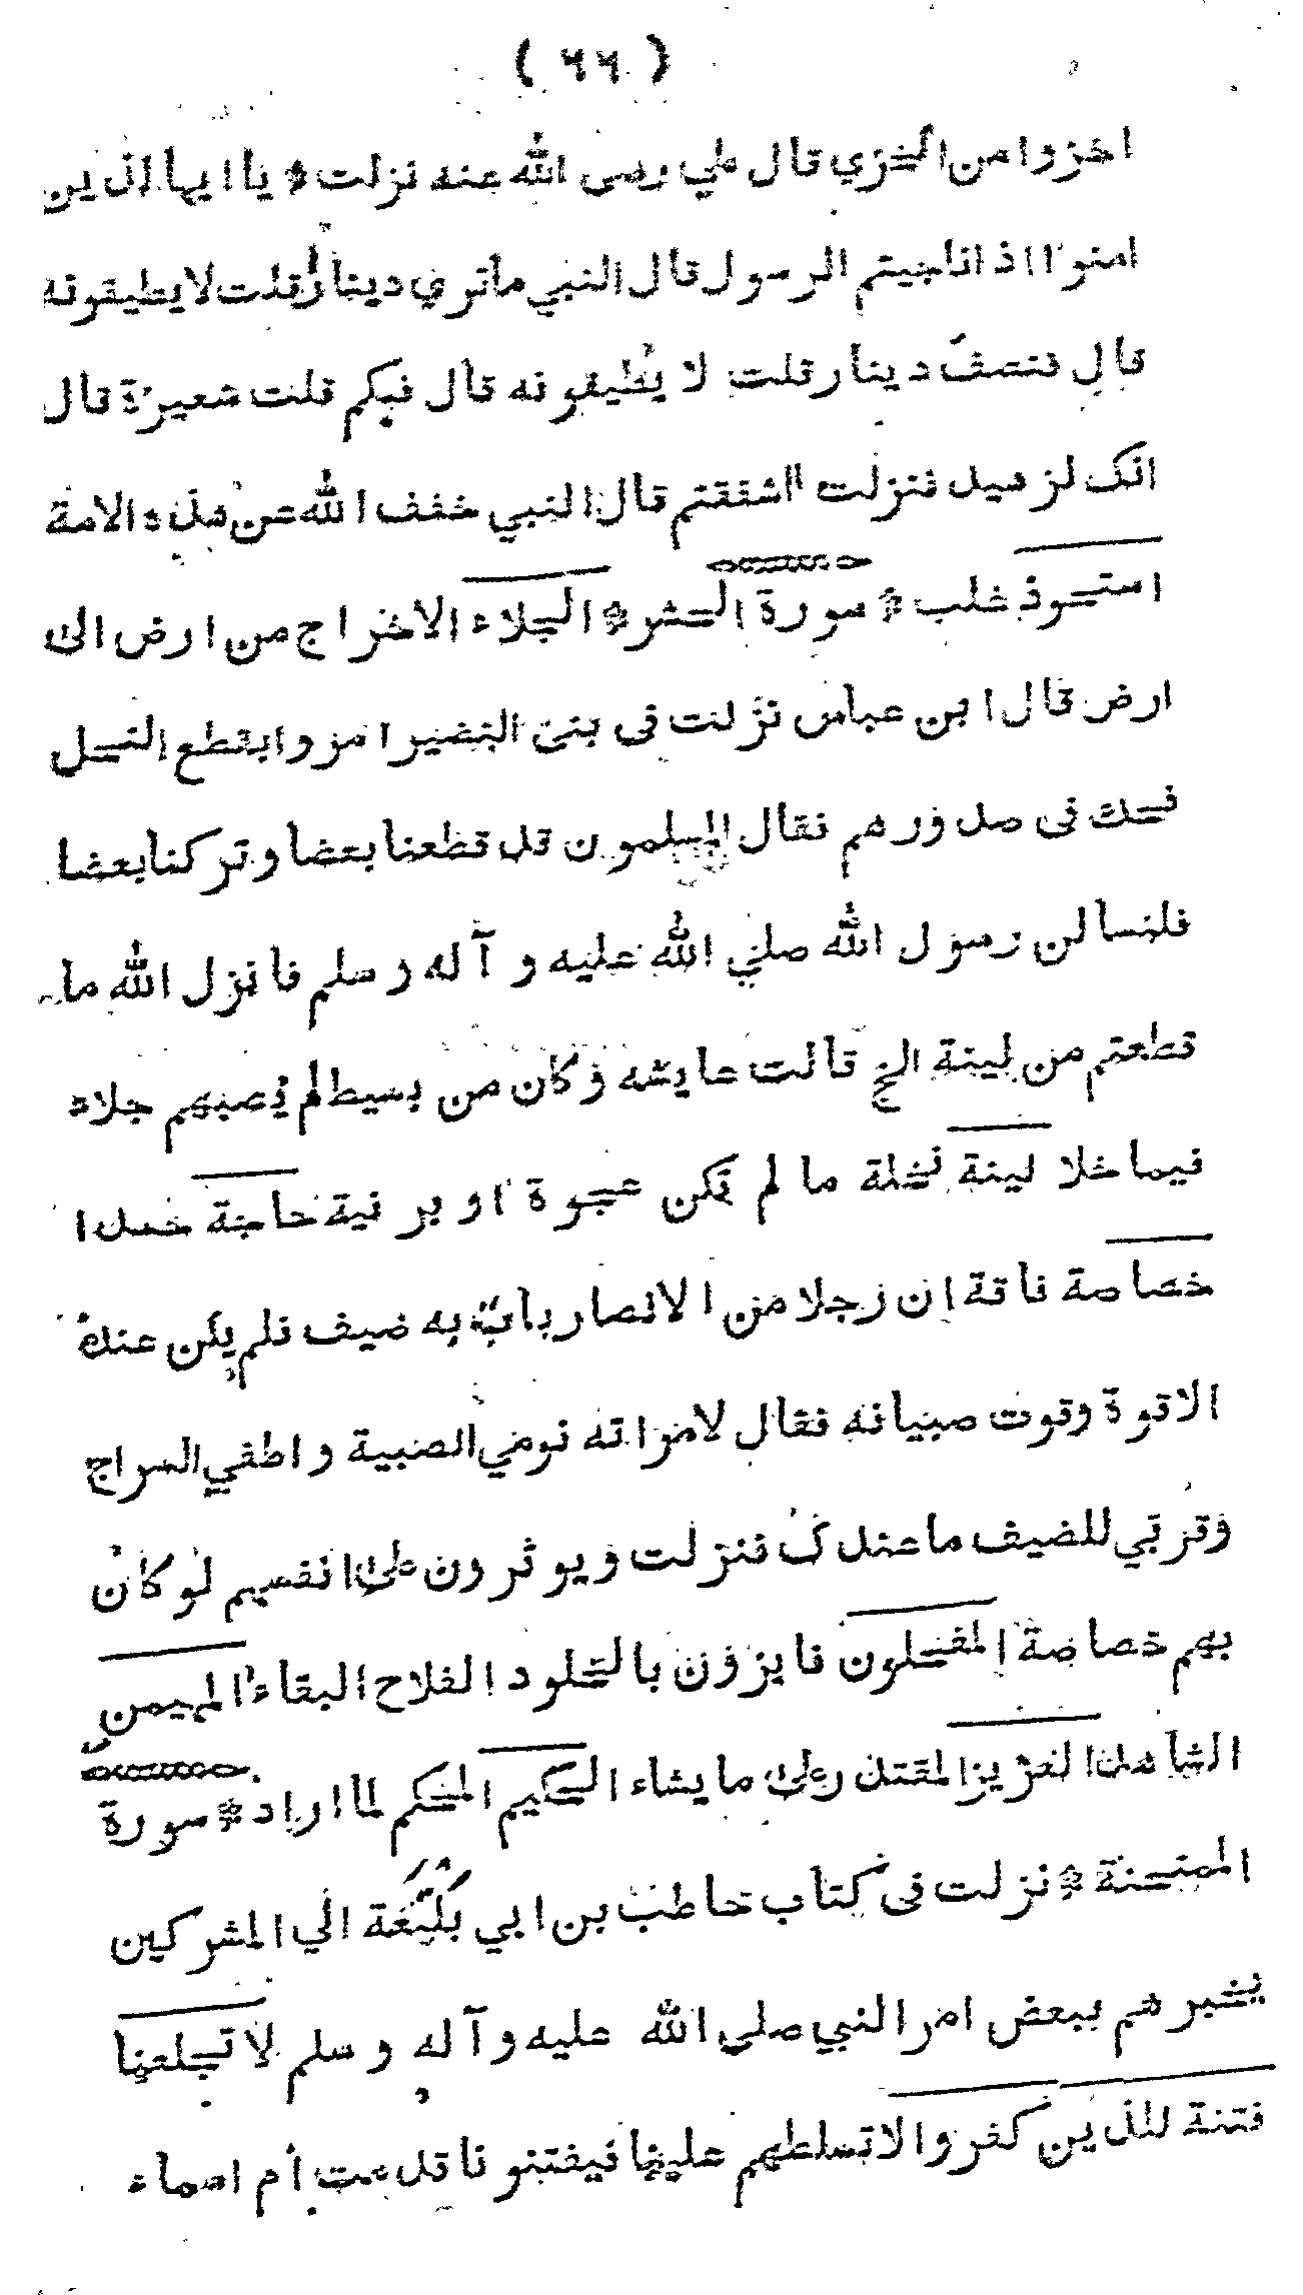 ( ٦٦ )
اخزوا من الخزي قال علي رضى الله عنه نزلت * يا ايها الذين
امنوا اذا ناجيتم الرسول قال النبي ما تري دينار قلت لا يطيقونه
قال فنصف دينار قلت لا يطيقونه قال فبكم قلت شعيرة قال
انك لزهيد فنزلت ااشفقتم قال النبي خفف الله عن هذه الامة
استحوذ غلب * سورة الحشر * الجلاء الاخراج من ارض الى
ارض قال ابن عباس نزلت فى بنى النضير امروا بقطع النخل
فحك فى صدورهم فقال المسلمون قد قطعنا بعضا وتركنا بعضا
فلنسالن رسول الله صلي الله عليه و آله وسلم فانزل الله ما
قطعتم من لينة الخ قالت عايشه وكان من بسيط لم يصبهم جلاء
فيما خلا لينة نخلة ما لم تكن عجوة او برنية حاجة حسدا
خصاصة فاقة ان رجلا من الانصار بات به ضيف فلم يكن عنده
الا قوة وقوت صبيانه فقال لامراته نومي الصبية و اطفي السراج
وقربي للضيف ما عندك فنزلت ويوثرون على انفسهم لو كان
بهم خصاصة المفحلون فايزون بالخلود الفلاح البقاء المهيمن
الشاهد العزيز المقتدر على ما يشاء الحكيم المحكم لما اراد * سورة
الممتحنة * نزلت فى كتاب حاطب بن ابي بَلْتَعَة الي المشركين
يخبرهم ببعض امر النبي صلي الله عليه و آله و سلم لا تجلعنا
فتنة للذين كفروا لا تسلطهم علينا فيفتنونا قدمت أم اسماء